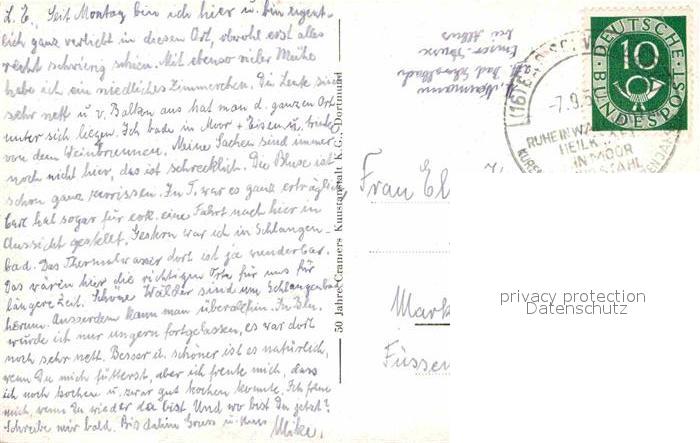 L. E., Seit Montag bin ich hier u. bin eigent-
lich ganz verliebt in diesen Ort, obwohl erst alles
recht schwierig schien. Mit ebenso vieler Mühe
habe ich ein niedliches Zimmerchen. Die Leute sind
sehr nett u. v. Balkon aus hat man d. ganzen Ort
unter sich liegen. Ich bade in Moor + Eisen u. trinke
von dem Weinbrunnen. Meine Sachen sind immer
noch nicht hier, das ist schrecklich. Die Bluse ist
schon ganz zerrissen. In T. war es ganz erträglich
hat sogar für eine Fahrt nach hier in
Aussicht gestellt. Gestern war ich in Schlangen-
bad. Das Thermalwasser dort ist ja wunderbar.
Das wären hier die richtigen Orte für uns für
längere Zeit. Schöne Wälder sind um Schlangenbad
herum. Ausserdem kann man überallhin. In
würde ich nur ungern fortgelassen, es war dort
noch sehr nett. Besser u. schöner ist es natürlich,
wenn Du mich fütterst, aber ich freute mich, dass
ich noch kochen u. zwar gut kochen konnte. Ich freue
mich, wenn Du wieder da bist. Und wo bist Du jetzt?
Schreibe mir bald. Bis dahin Gruss u. Kuss
50 Jahre Cramers Kunstanstalt K.G., Dortmund
Bad Schwalbach
(16)
-7.9.5
RUHE IN WA
HEILK
IN MOOR
STAHL
DEUTSCHE
BUNDESPOST
10
Frau El
Mark
Füssen
privacy protection
Datenschutz